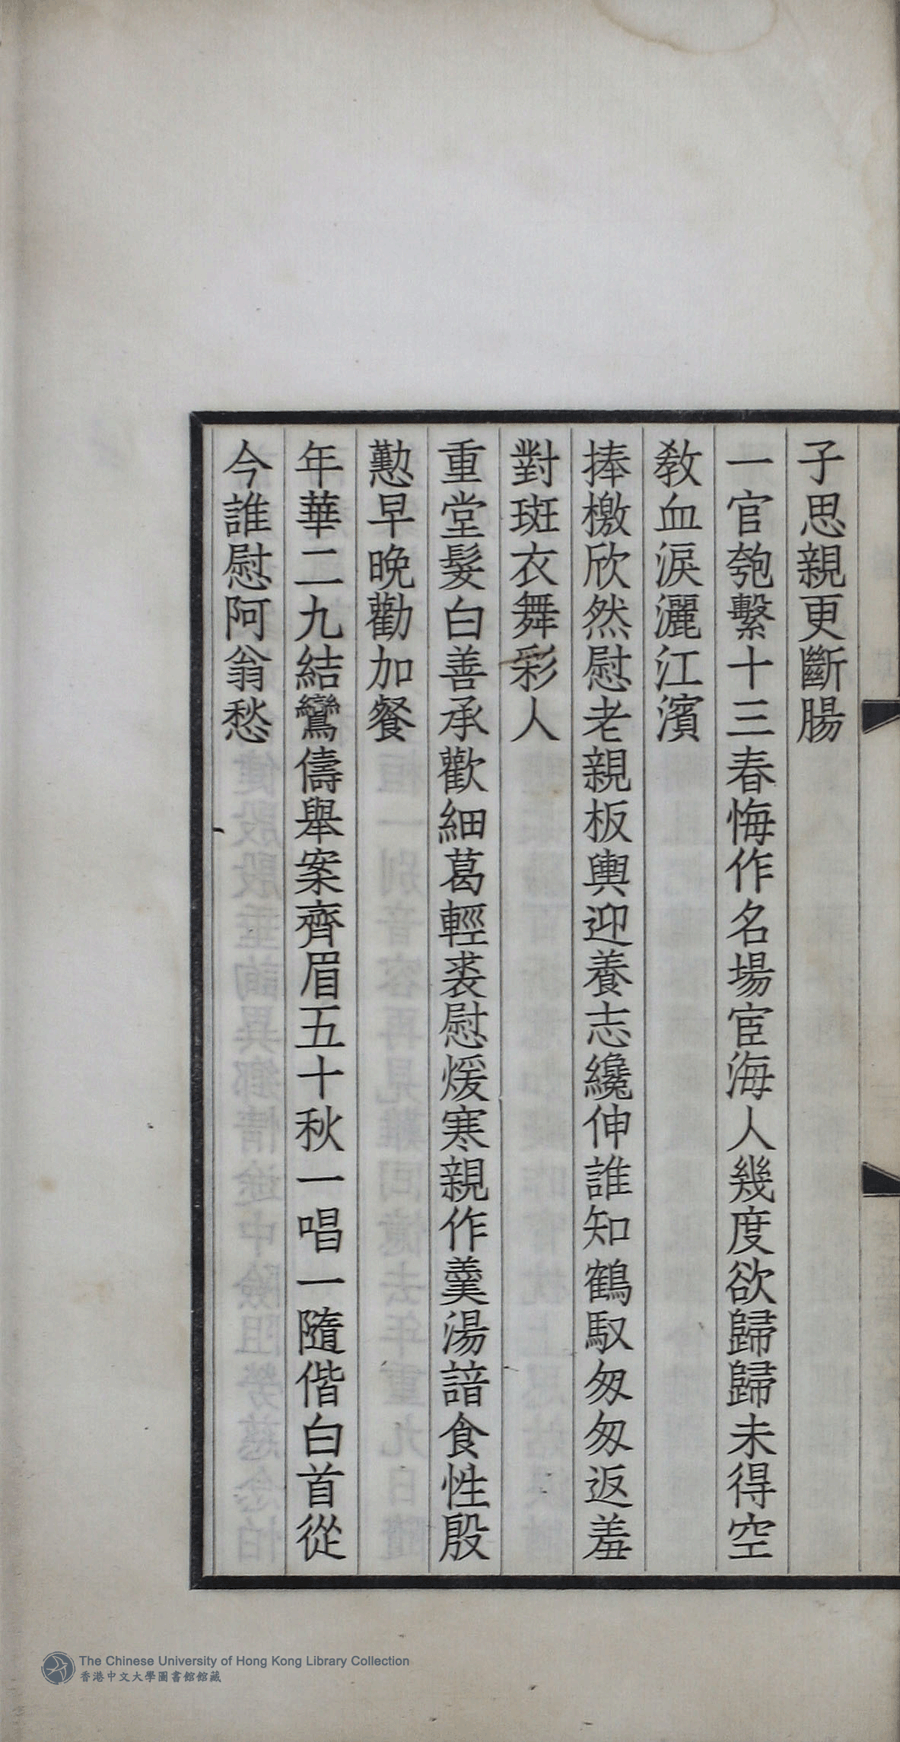 子思親更斷腸
一官匏繫十三春悔作名場宦海人幾度欲歸歸未得空
教血淚灑江濱
捧檄欣然慰老親板輿迎養志纔伸誰知鶴馭匆匆返羞
對斑衣舞彩人
重堂髮白善承歡細葛輕裘慰煖寒親作羹湯諳食性殷
懃早晚勸加餐
年華二九結鸞儔舉案齊眉五十秋一唱一隨偕白首從
今誰慰阿翁愁
The Chinese University of Hong Kong Library Collection
香港中文大學圖書館館藏